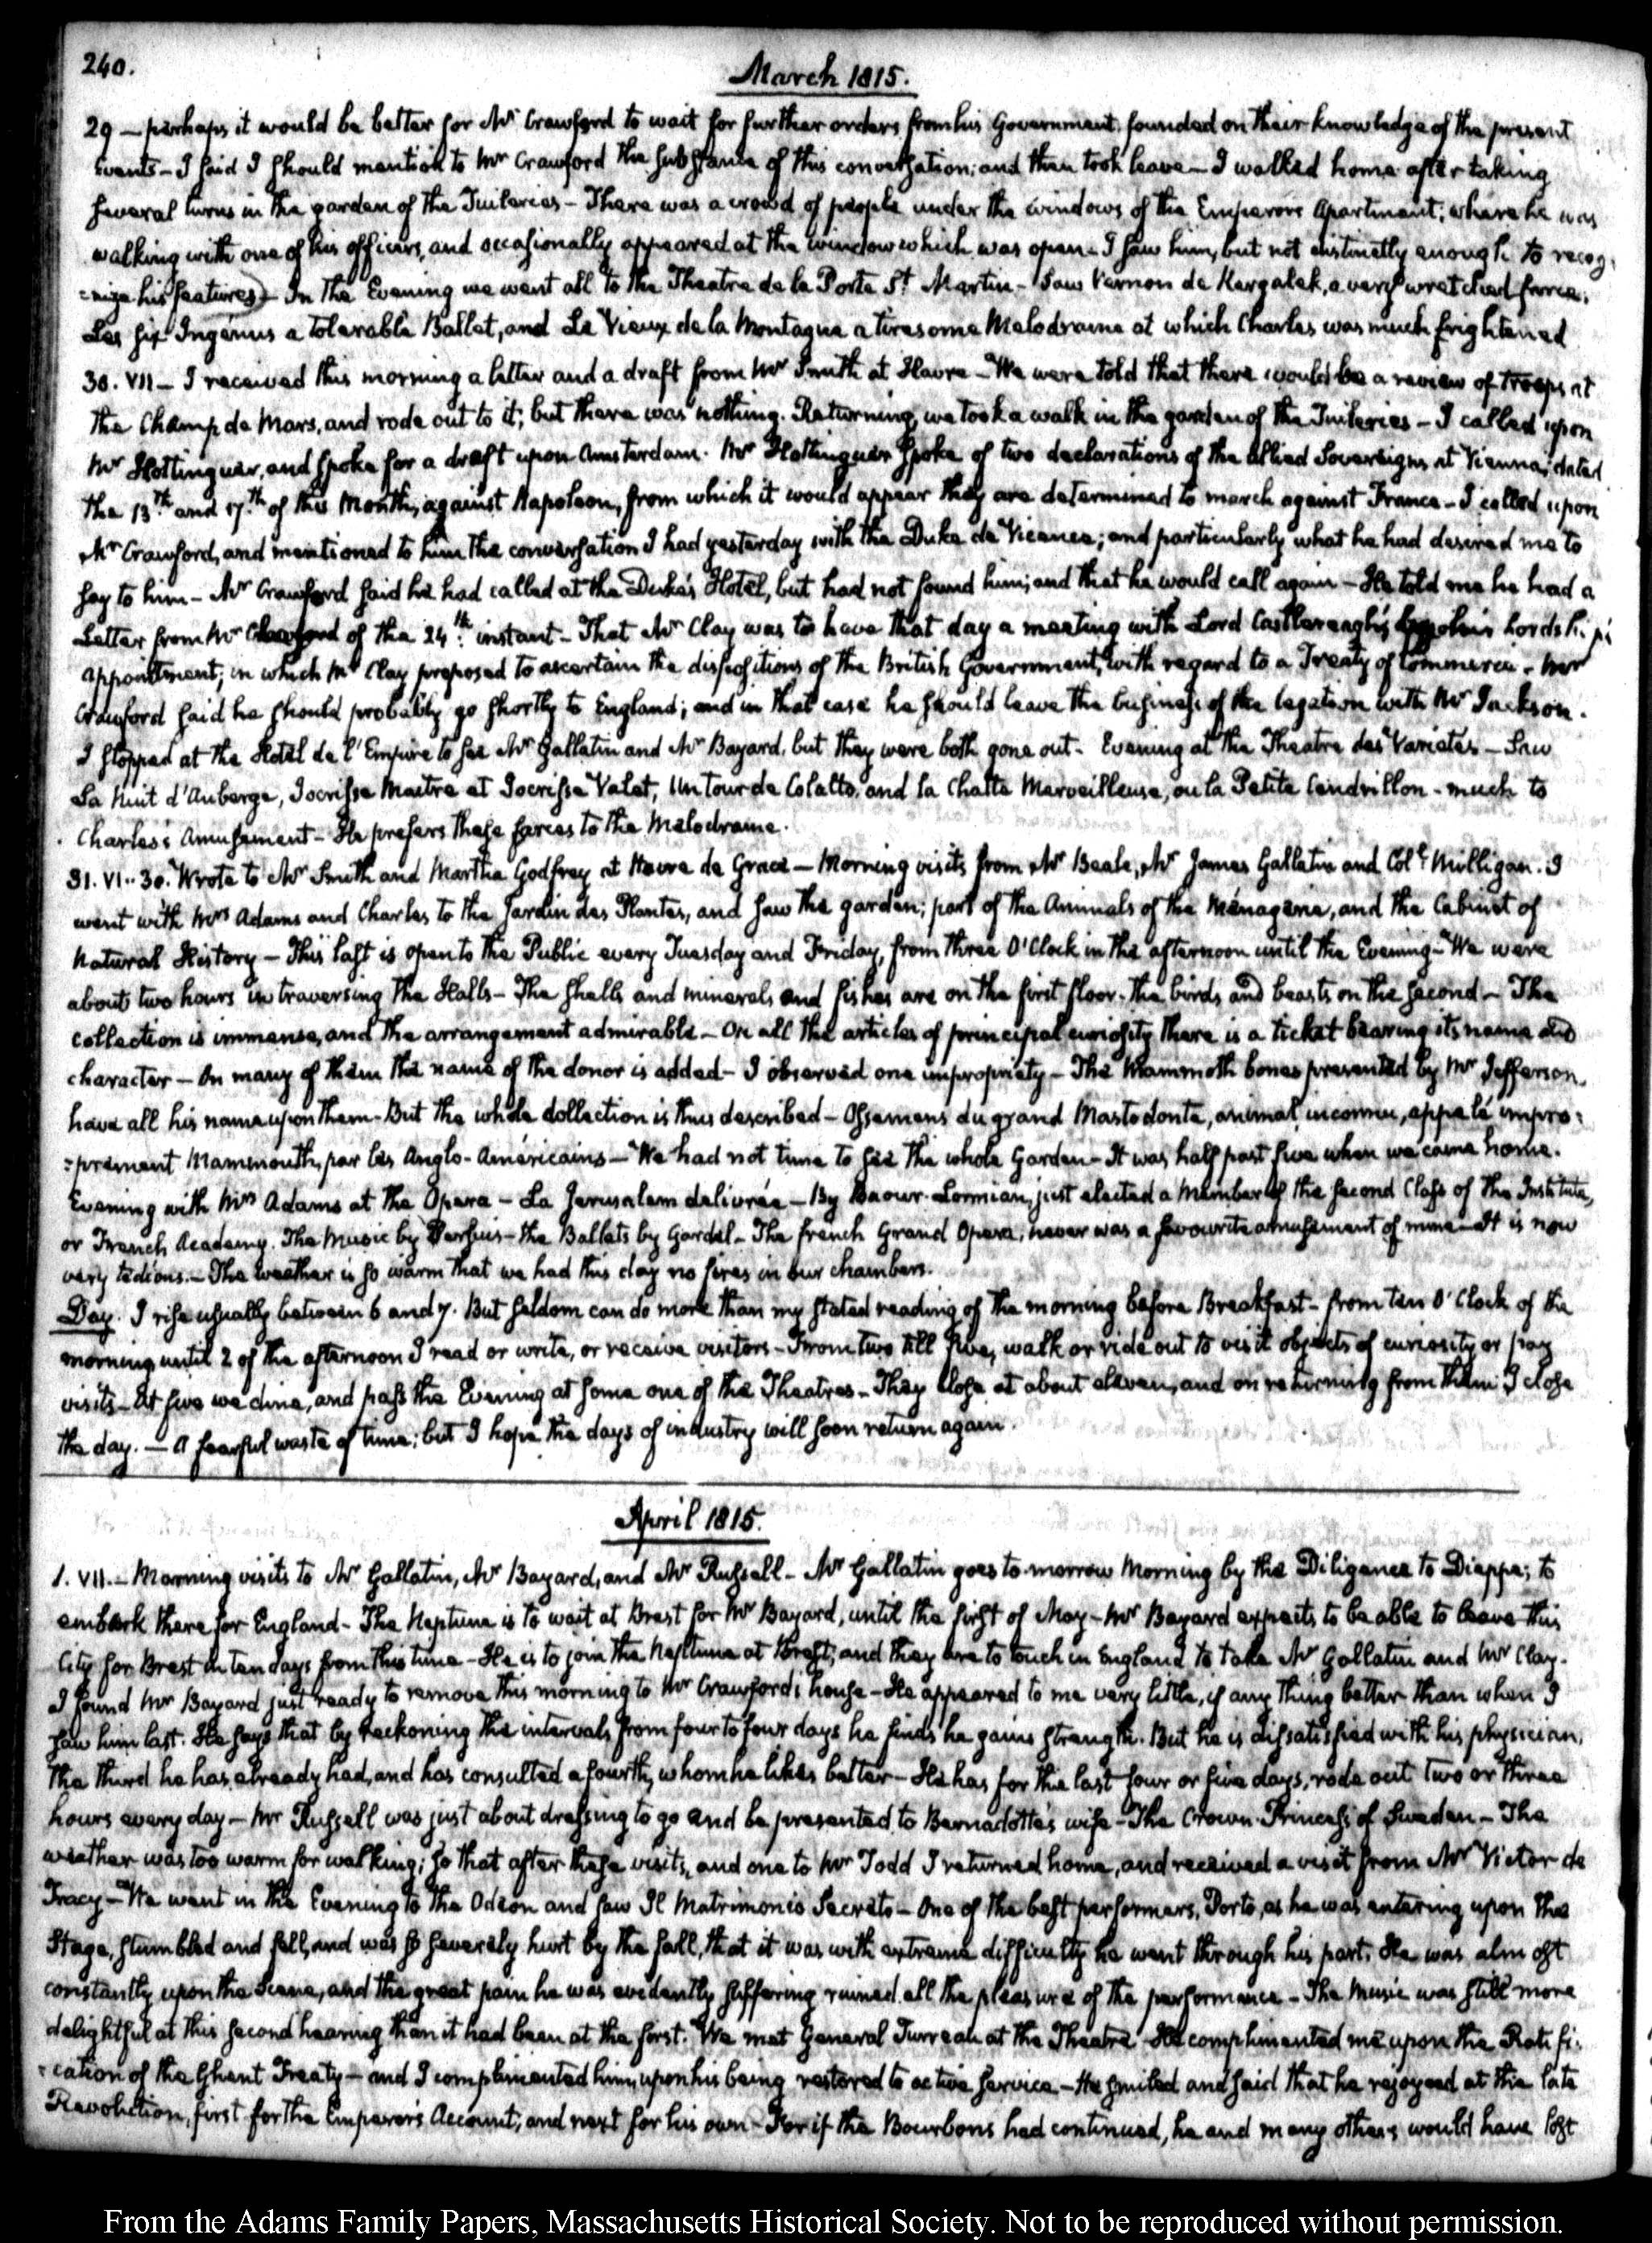 240.
March 1815.
29 — perhaps it would be better for Mr Crawford to wait for further orders from his Government, founded on their knowledge of the present
Events — I said I should mention to Mr Crawford the substance of this conversation; and then took leave — I walked home after taking
several turns in the garden of the Tuileries — There was a crowd of people under the windows of the Emperors Apartment; where he was
walking with one of his officers, and occasionally appeared at the window which was open — I saw him, but not distinctly enough to recog-
=nize his features) — In the Evening we went all to the Theatre de la Porte St. Martin — Saw Vernon de Kergalek, a very wretched farce;
Les six Ingénus a tolerable Ballet, and Le Vieux de la Montagne a tiresome Melodrama at which Charles was much frightened
30. VII — I received this morning a letter and a draft from Mr Smith at Havre — We were told that there would be a review of troops at
the Champ de Mars, and rode out to it; but there was nothing. Returning, we took a walk in the garden of the Tuileries — I called upon
Mr Hottinguer, and spoke for a draft upon Amsterdam. Mr Hottinguer spoke of two declarations of the allied Sovereigns at Vienna; dated
the 13th. and 17th. of this Month, against Napoleon, from which it would appear they are determined to march against France — I called upon
Mr Crawford, and mentioned to him the conversation I had yesterday with the Duke de Vicence; and particularly what he had desired me to
say to him — Mr Crawford said he had called at the Duke's Hotel, but had not found him; and that he would call again — He told me he had a
Letter from Mr of the 24th. instant — That Mr Clay was to have that day a meeting with Lord Castlereagh; his Lordship's
appointment; in which Mr Clay proposed to ascertain the dispositions of the British Government, with regard to a Treaty of Commerce. Mr
Crawford said he should probably go shortly to England; and in that case he should leave the business of the legation with Mr Jackson.
I stopped at the Hotel de l'Empire to see Mr Gallatin and Mr Bayard, but they were both gone out. Evening at the Theatre des Varietés — Saw
La Nuit d'Auberge, Jocrisse Maitre et Jocrisse Valet, Un tour de Colalto, and la Chatte Merveilleuse, ou la Petite Cendrillon — much to
Charles's Amusement — He prefers these farces to the Melodrame.
31. VI..30. Wrote to Mr Smith and Martha Godfrey at Havre de Grace — Morning visits from Mr Beale, Mr James Gallatin and Coll. Milligan. I
went with Mrs Adams and Charles to the Jardin des Plantes, and saw the garden; part of the Animals of the Ménagerie, and the Cabinet of
Natural History — This last is open to the Public every Tuesday and Friday, from three O'Clock in the afternoon until the Evening — We were
about two hours in traversing the Halls — The shells and minerals and fishes are on the first floor. The birds and beasts on the second — The
collection is immense, and the arrangement admirable — On all the articles of principal curiosity there is a ticket bearing its name and
character — On many of them the name of the donor is added — I observed one impropriety — The Mammoth bones presented by Mr Jefferson,
have all his name upon them — But the whole collection is thus described — Ossemens du grand Mastodonte, animal inconnu, appelé impro=
=prement Mammouth, par les Anglo-Américains — We had not time to see the whole Garden — It was half past five when we came home.
Evening with Mrs Adams at the Opera — La Jerusalem delivrée — By Baour-Lormian, just elected a Member of the second Class of the Institute,
or French Academy. The Music by Persuis — the Ballets by Gardel — The french Grand Opera, never was a favourite amusement of mine — It is now
very tedious. — The weather is so warm that we had this day no fires in our chambers.
Day. I rise usually between 6 and 7. But seldom can do more than my stated reading of the morning before Breakfast — from ten O'Clock of the
morning until 2 of the afternoon I read or write, or receive visitors — From two till five, walk or ride out to visit objects of curiosity or pay
visits — At five we dine, and pass the Evening at some one of the Theatres — They close at about eleven, and on returning from them I close
the day. — A fearful waste of time; but I hope the days of industry will soon return again.
April 1815.
1. VII. — Morning visits to Mr Gallatin, Mr Bayard, and Mr Russell — Mr Gallatin goes to-morrow Morning by the Diligence to Dieppe; to
embark there for England — The Neptune is to wait at Brest for Mr Bayard, until the first of May — Mr Bayard expects to be able to leave this
City for Brest in ten days from this time — He is to join the Neptune at Brest; and they are to touch in England to take Mr Gallatin and Mr Clay.
I found Mr Bayard just ready to remove this morning to Mr Crawford's house — He appeared to me very little, if any thing better than when I
saw him last. He says that by reckoning the intervals from four to four days he finds he gains strength. But he is dissatisfied with his physician,
the third he has already had, and has consulted a fourth, whom he likes better — He has for the last four or five days, rode out two or three
hours every day — Mr Russell was just about dressing to go and be presented to Bernadotte's wife — The Crown-Princess of Sweden — The
weather was too warm for walking; so that after these visits, and one to Mr Todd I returned home, and received a visit from Mr Victor de
Tracy — We went in the Evening to the Odeon and saw Il Matrimonio Secreto — One of the best performers, Porto, as he was entering upon the
Stage, stumbled and fell, and was so severely hurt by the fall, that it was with extreme difficulty he went through his part. He was almost
constantly upon the Scene, and the great pain he was evidently suffering ruined all the pleasure of the performance — The Music was still more
delightful at this second hearing than it had been at the first. We met General Turreau at the Theatre — He complimented me upon the Ratifi-
=cation of the Ghent Treaty — and I complimented him, upon his being restored to active service — He smiled and said that he rejoyced at the late
Revolution, first for the Emperor's Account; and next for his own — For if the Bourbons had continued, he and many others would have lost
From the Adams Family Papers, Massachusetts Historical Society. Not to be reproduced without permission.